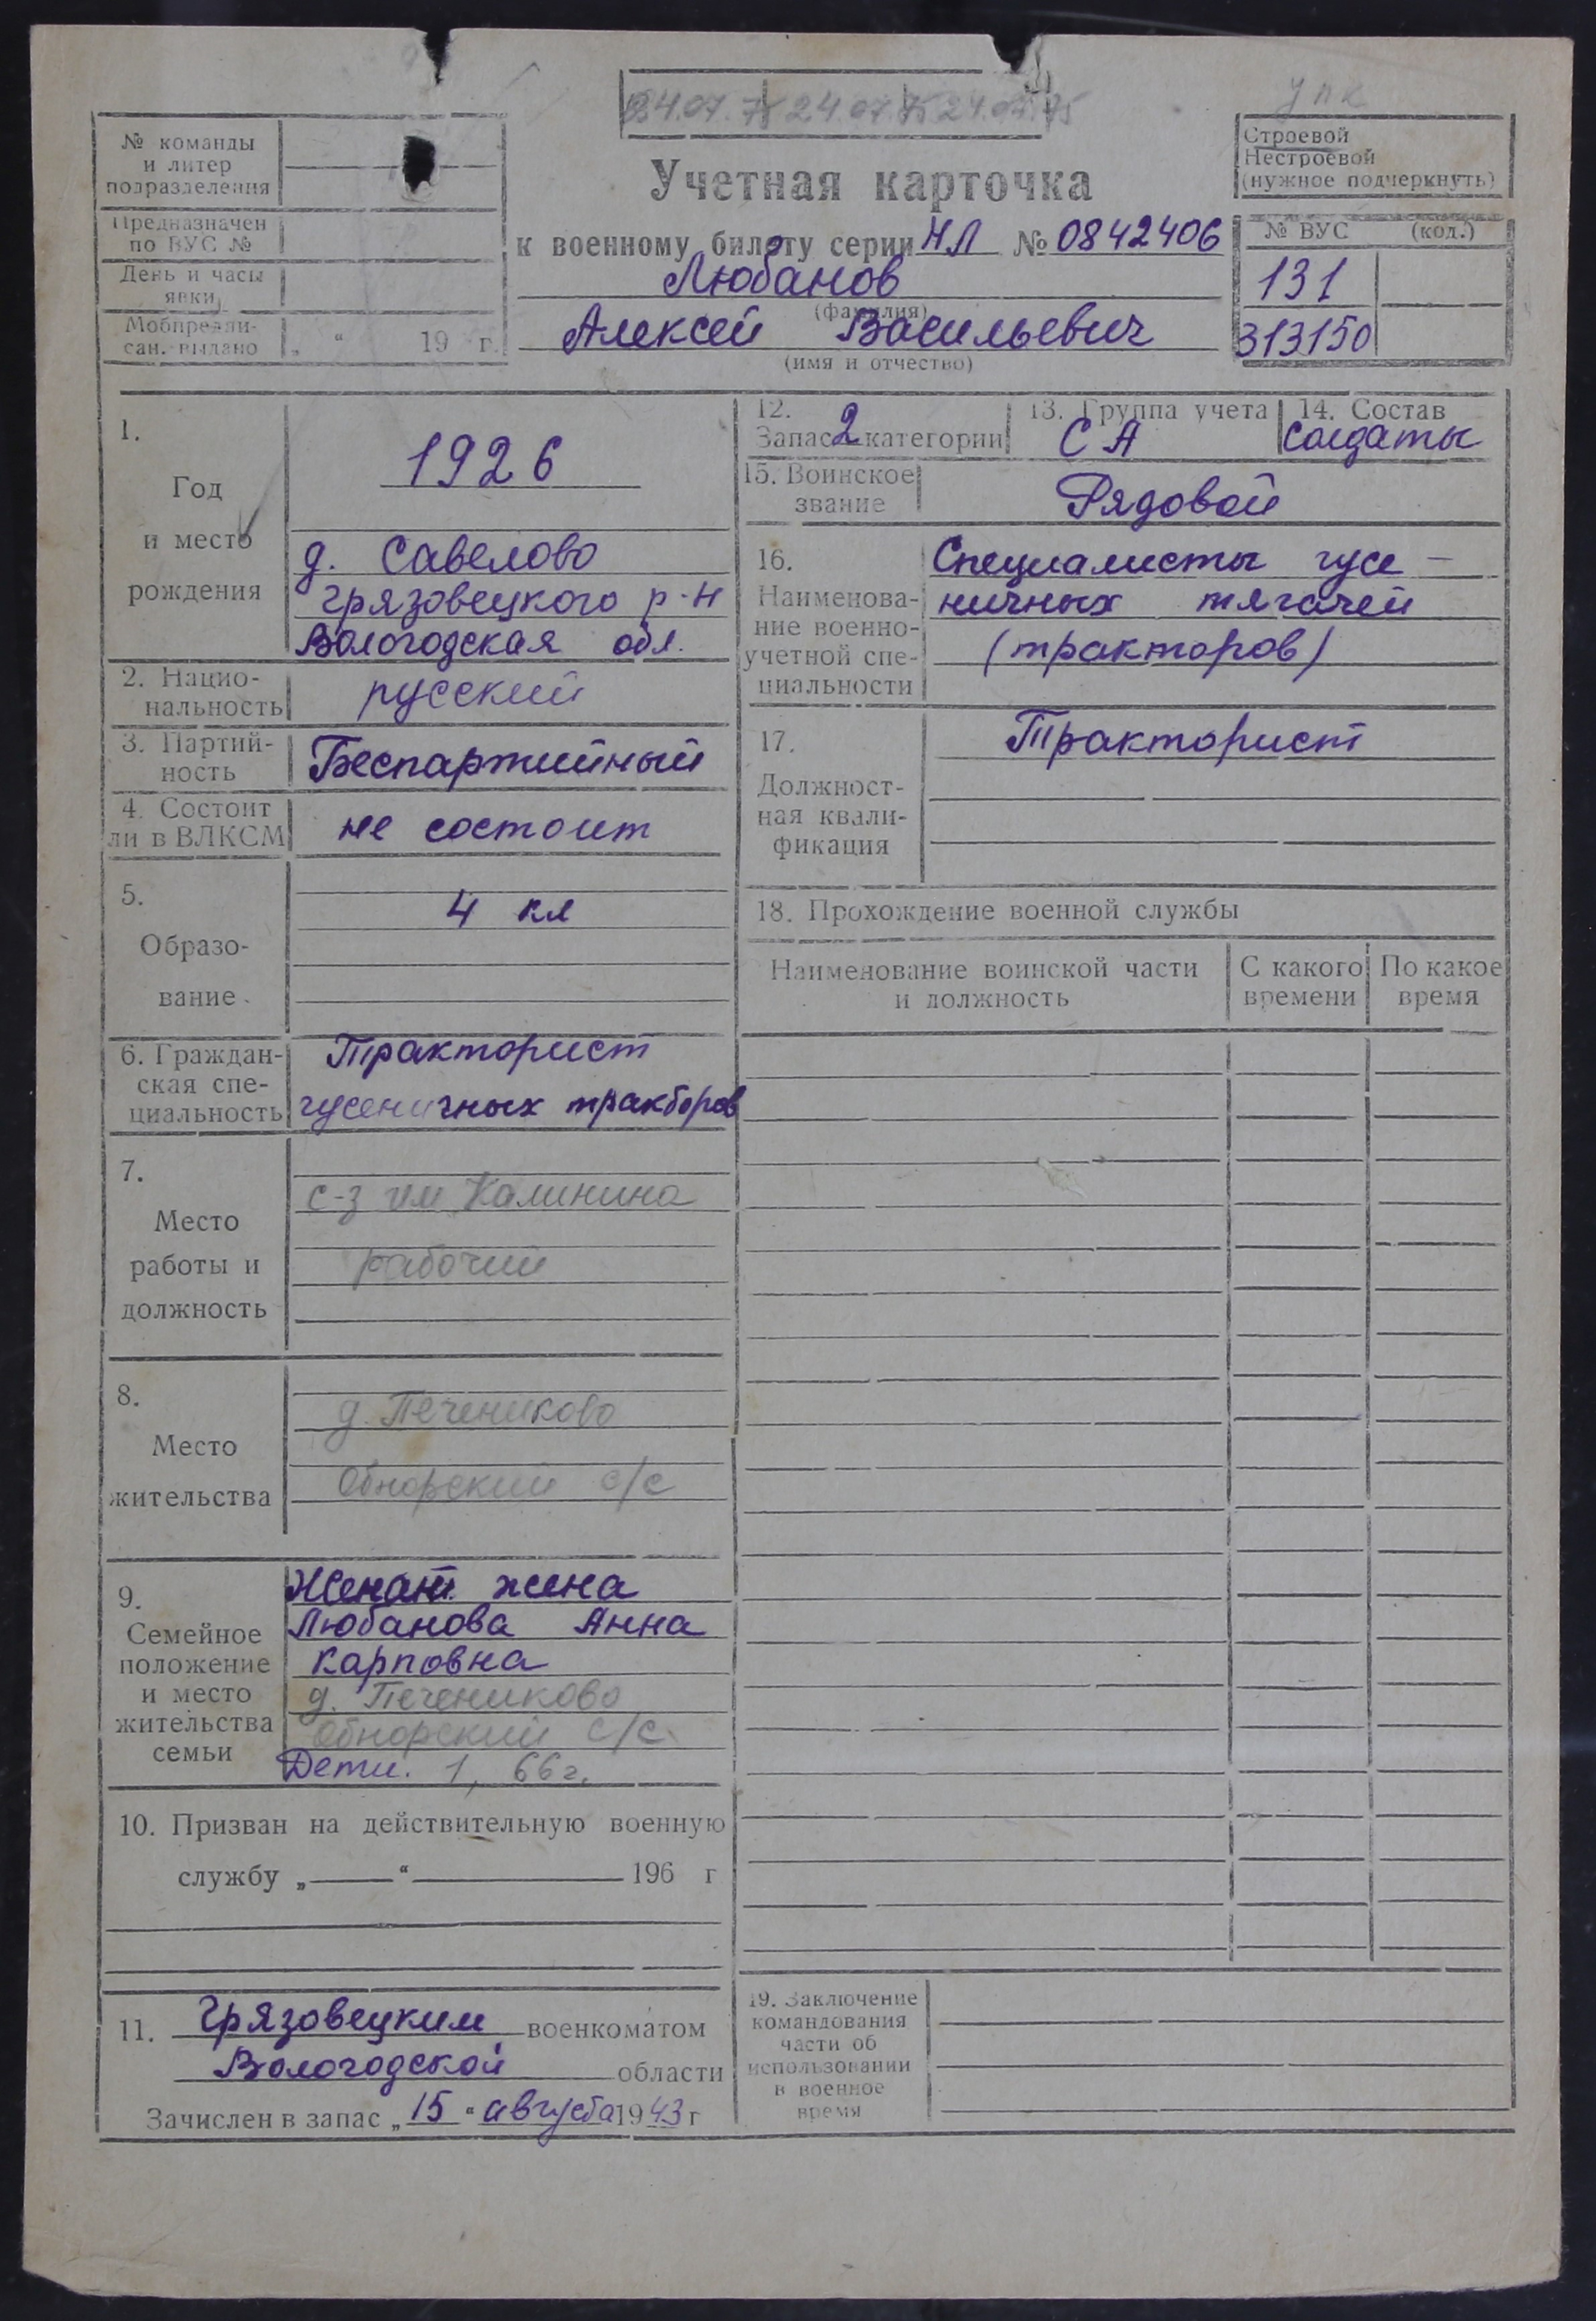 24.07.75 24.07.75 24.07.75
упк
№ команды
и литер
подразделения
Предназначен
по ВУС №
День и часы
явки
Мобпредпи-
сан. выдано „ “ 19 г.
Учетная карточка
к военному билету серии НЛ № 0842406
Любанов
(фамилия)
Алексей Васильевич
(имя и отчество)
Строевой
Нестроевой
(нужное подчеркнуть)
№ ВУС (код.)
131
313150
1.
Год
и место
рождения
1926
д. Савелово
Грязовецкого р-н
Вологодская обл.
2. Нацио-
нальность русский
3. Партий-
ность Беспартийный
4. Состоит
ли в ВЛКСМ не состоит
5.
Образо-
вание
4 кл
6. Граждан-
ская спе-
циальность
Тракторист
гусеничных тракторов
7.
Место
работы и
должность
с-з им Калинина
рабочий
8.
Место
жительства
д. Печениково
Обнорский с/с
9.
Семейное
положение
и место
жительства
семьи
Женат. жена
Любанова Анна
Карповна
д. Печениково
Обнорский с/с.
Дети. 1, 66 г.
10. Призван на действительную военную
службу „ “ 196 г
11. Грязовецким военкоматом
Вологодской области
Зачислен в запас „15“ августа 1943 г
12.
Запас 2 категории
13. Группа учета
СА
14. Состав
солдаты
15. Воинское
звание Рядовой
16.
Наименова-
ние военно-
учетной спе-
циальности
Специалисты гусе-
ничных тягачей
(тракторов)
17.
Должност-
ная квали-
фикация
Тракторист
18. Прохождение военной службы
Наименование воинской части
и должность
С какого
времени
По какое
время
19. Заключение
командования
части об
использовании
в военное
время